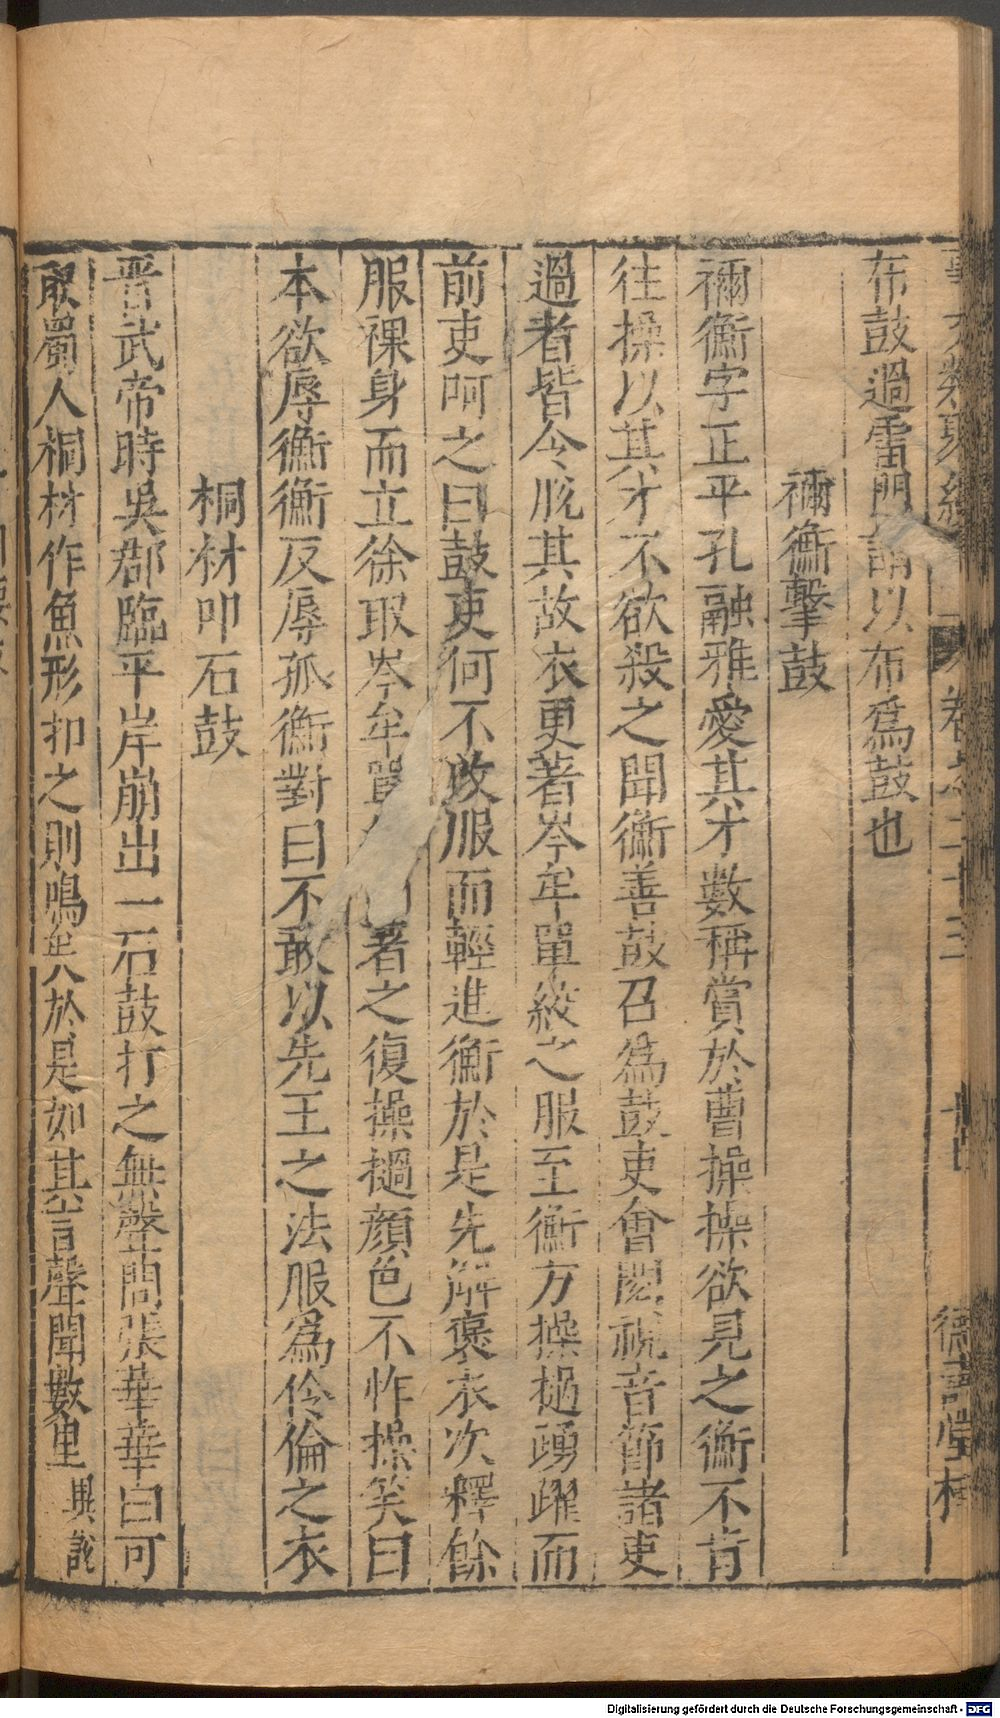 事文類聚續 卷之二十三 德壽堂梓
布鼓過雷門謂以布爲鼓也
禰衡擊鼓
禰衡字正平孔融雅愛其才數稱賞於曹操操欲見之衡不肯
往操以其才不欲殺之聞衡善鼓召爲鼓吏會閱視音節諸吏
過者皆令脫其故衣更著岑牟單絞之服至衡方操撾踴躍而
前吏呵之曰鼓吏何不改服而輕進衡於是先解褻衣次釋餘
服裸身而立徐取岑牟單著之復操撾顏色不怍操笑曰
本欲辱衡衡反辱孤衡對曰不敢以先王之法服爲伶倫之衣
桐材叩石鼓
晋武帝時吳郡臨平岸崩出一石鼓打之無聲問張華華曰可
取蜀人桐材作魚形扣之則鳴矣於是如其言聲聞數里 異說
Digitalisierung gefördert durch die Deutsche Forschungsgemeinschaft - DFG